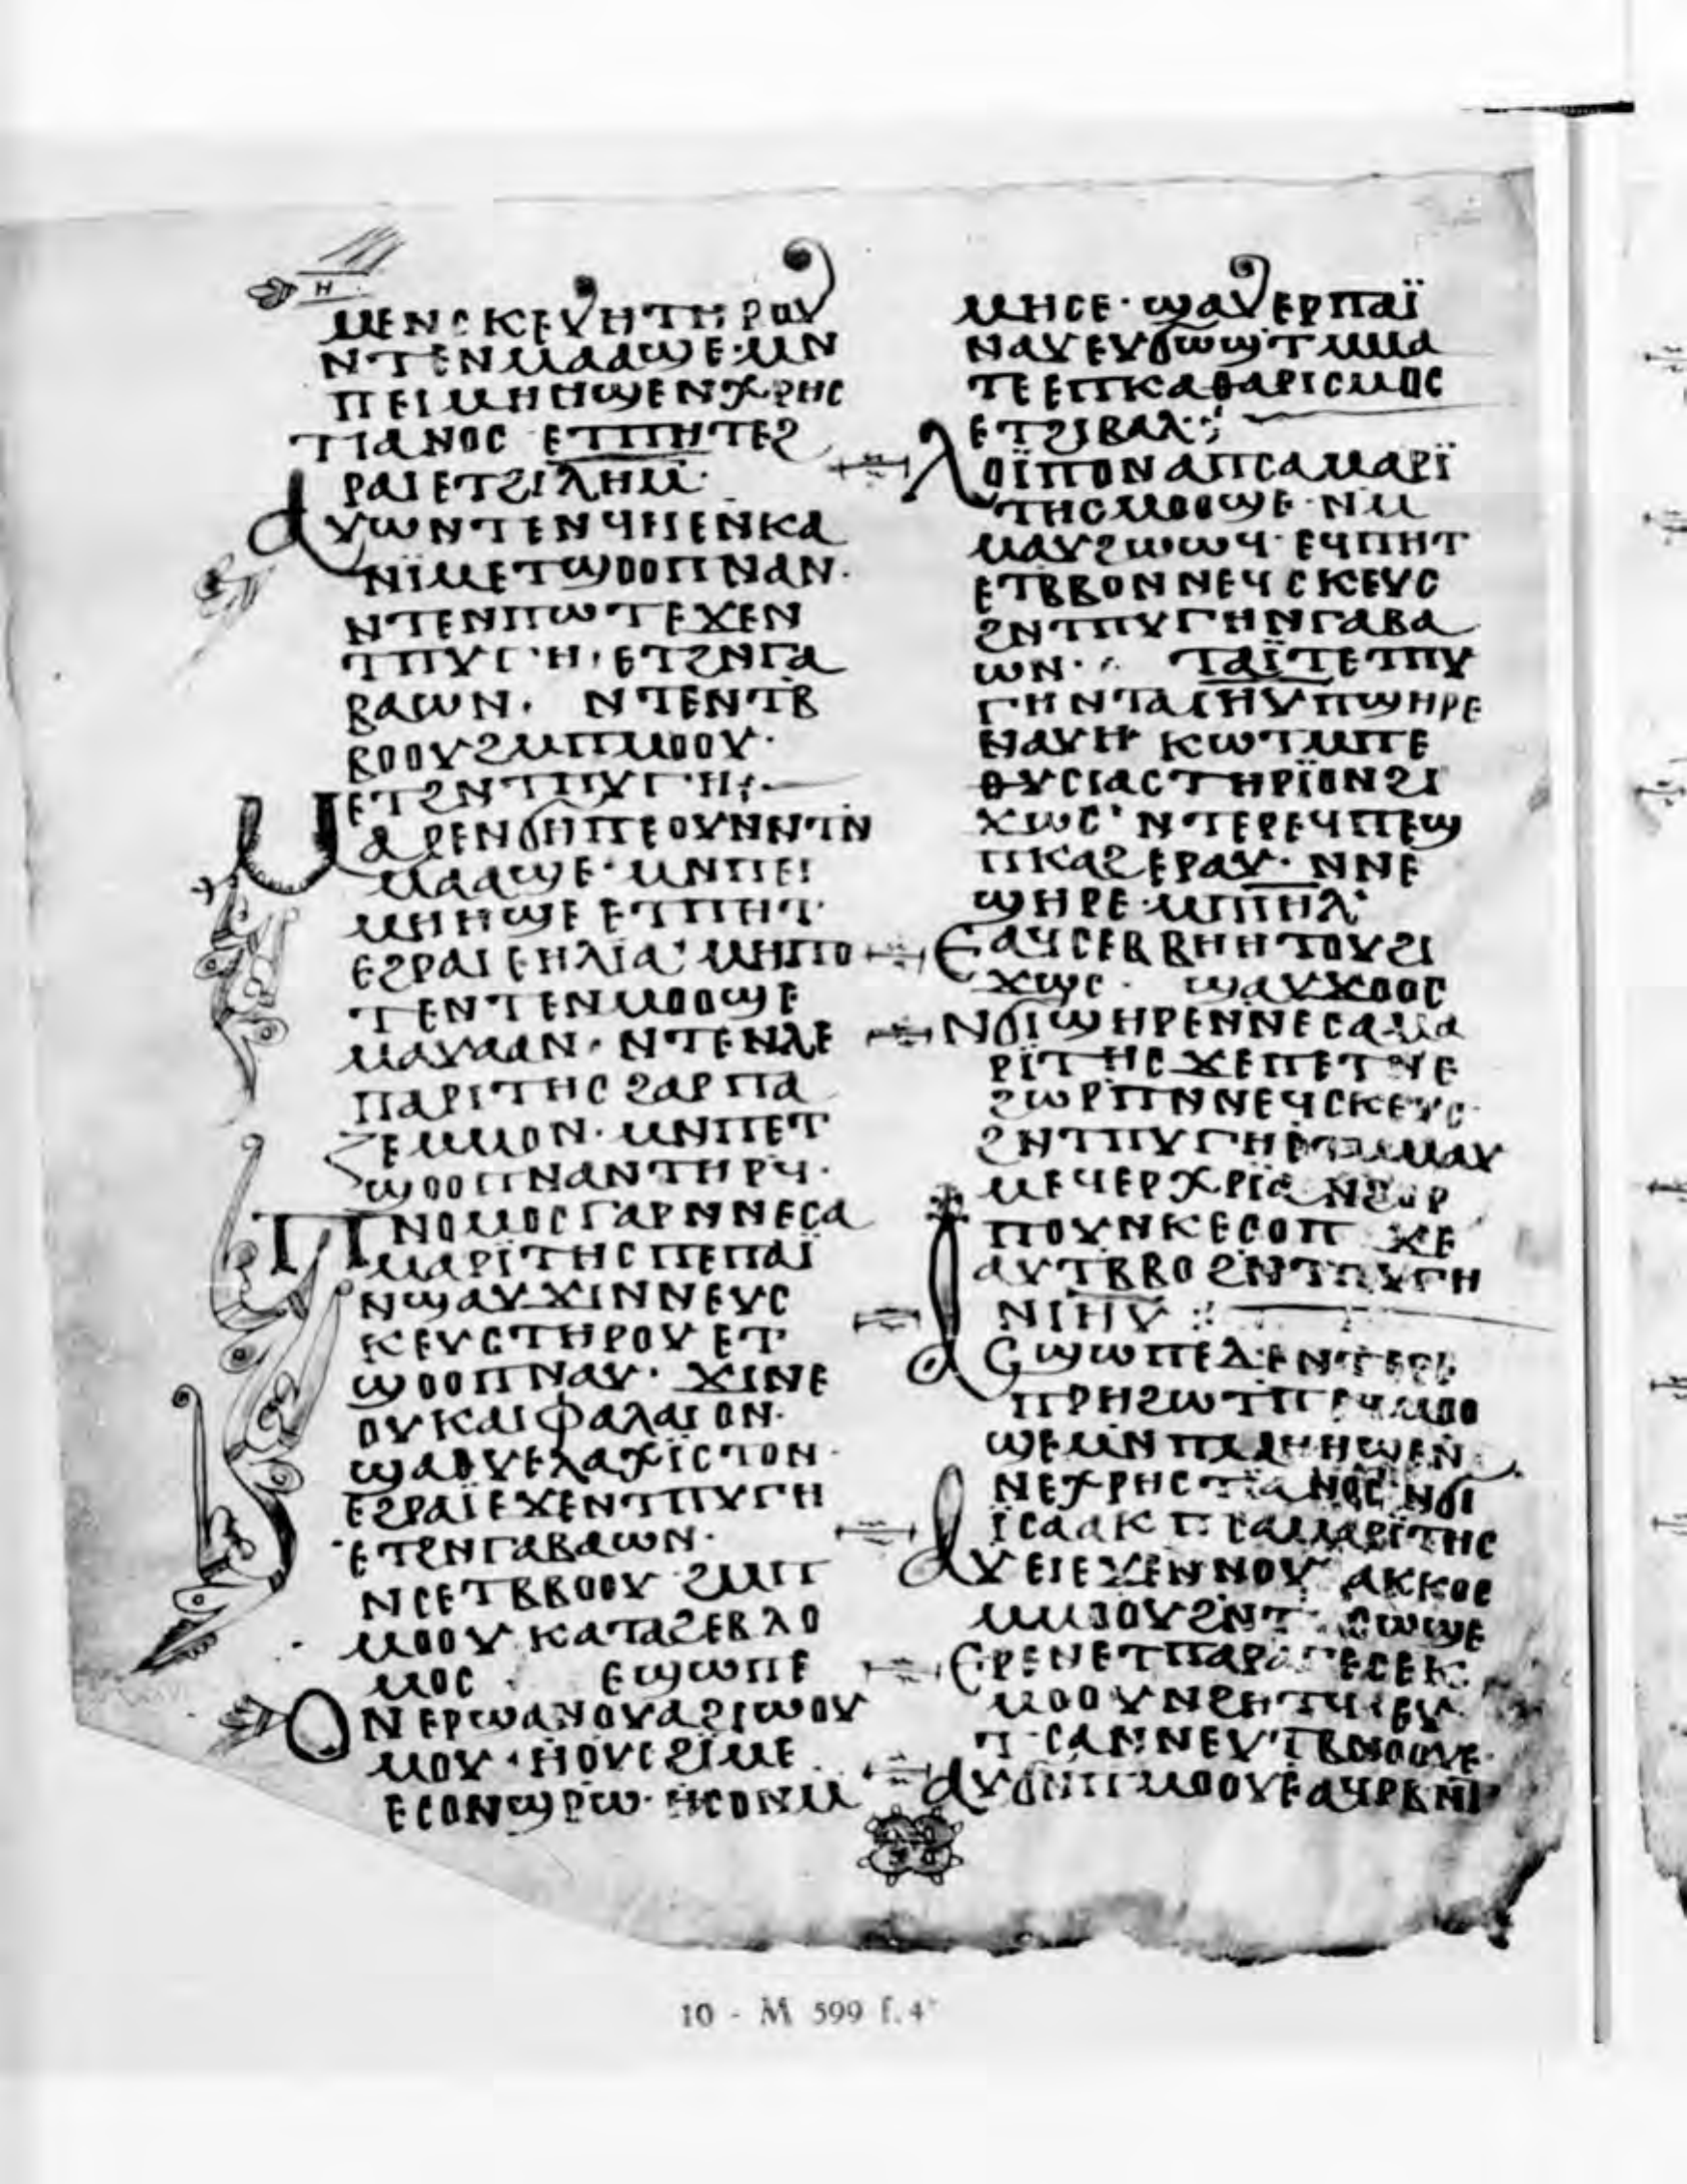 Η
ⲙⲉⲛⲥⲕⲉⲩⲏⲧⲏⲣⲟⲩ
ⲛⲧⲉⲛⲙⲁⲁϣⲉ·ⲙⲛ
ⲡⲉⲓⲙⲏⲏϣⲉⲛⲭⲣⲏⲥ
ⲧⲓⲁⲛⲟⲥ ⲉⲧⲡⲏⲧⲉϩ
ⲣⲁⲓⲉⲧϩⲓⲗⲏⲙ·
ⲁⲩⲱⲛⲧⲉⲛϥⲓⲛⲉⲛⲕⲁ
ⲛⲓⲙⲉⲧϣⲟⲟⲡⲛⲁⲛ·
ⲛⲧⲉⲛⲡⲱⲧⲉϫⲉⲛ
ⲧⲡⲩⲅⲏ·ⲉⲧϩⲛⲅⲁ
ⲃⲁⲱⲛ· ⲛⲧⲉⲛⲧⲃ
ⲃⲟⲟⲩϩⲙⲡⲙⲟⲟⲩ·
ⲉⲧϩⲛⲧⲡⲩⲅⲏ:
ⲙⲁⲣⲉⲛϭⲏⲡⲉⲟⲩⲛⲛⲧⲛ
ⲙⲁⲁϣⲉ·ⲙⲛⲡⲉⲓ
ⲙⲏⲏϣⲉ ⲉⲧⲡⲏⲧ·
ⲉϩⲣⲁⲓⲉⲏⲗⲓⲁ·ⲙⲏⲡⲟ
ⲧⲉⲛⲧⲉⲛⲙⲟⲟϣⲉ
ⲙⲁⲩⲁⲁⲛ·ⲛⲧⲉⲛⲗⲉ
ⲡⲁⲣⲓⲧⲏⲥϩⲁⲣⲡⲁ
ⲍⲉⲙⲙⲟⲛ·ⲙⲛⲡⲉⲧ
ϣⲟⲟⲡⲛⲁⲛⲧⲏⲣϥ·
ⲡⲛⲟⲙⲟⲥⲅⲁⲣⲛⲛⲉⲥⲁ
ⲙⲁⲣⲓⲧⲏⲥⲡⲉⲡⲁⲓ̈
ⲛϣⲁⲩϫⲓⲛⲛⲉⲩⲥ
ⲕⲉⲩⲥⲧⲏⲣⲟⲩ ⲉⲧ
ϣⲟⲟⲡⲛⲁⲩ·ϫⲓⲛⲉ
ⲟⲩⲕⲁⲓⲫⲁⲗⲁⲓⲟⲛ·
ϣⲁⲟⲩⲉⲗⲁⲭⲓ̈ⲥⲧⲟⲛ·
ⲉϩⲣⲁⲓ̈ⲉϫⲉⲛⲧⲡⲩⲅⲏ
ⲉⲧϩⲛⲅⲁⲃⲁⲱⲛ·
ⲛⲥⲉⲧⲃⲃⲟⲟⲩ ϩⲙⲡ
ⲙⲟⲟⲩ ⲕⲁⲧⲁϩⲉⲃⲇⲟ
ⲙⲟⲥ · ⲉϣⲱⲡⲉ
ⲟⲛⲉⲣϣⲁⲛⲟⲩⲁϩⲓⲱⲟⲩ
ⲙⲟⲩ·ⲏⲟⲩⲥϩⲓⲙⲉ
ⲉⲥⲟⲛϣⲣⲱ·ⲏⲥⲟⲛⲙ
ⲙⲏⲥⲉ·ϣⲁⲩⲉⲣⲡⲁⲓ̈
ⲛⲁⲩⲉⲩϭⲱϣⲧⲙⲙⲁ
ⲧⲉⲉⲡⲕⲁⲑⲁⲣⲓⲥⲙⲟⲥ
ⲉⲧϩⲓⲃⲁⲗ:
ⲗⲟⲓ̈ⲡⲟⲛⲁⲡⲥⲁⲙⲁⲣⲓ̈
ⲧⲏⲥⲙⲟⲟϣⲉ·ⲛⲙ
ⲙⲁⲩϩⲱⲱϥ·ⲉϥⲡⲏⲧ
ⲉⲧⲃⲃⲟⲛⲛⲉϥⲥⲕⲉⲩⲥ
ϩⲛⲧⲡⲩⲅⲏⲛⲅⲁⲃⲁ
ⲱⲛ· ⲧⲁⲓ̈ⲧⲉⲧⲡⲩ
ⲅⲏⲛⲧⲁⲓⲏⲩⲡϣⲏⲣⲉ
ⲛⲁⲩⲏ ⲕⲱⲧⲙⲡⲉ
ⲑⲩⲥⲓⲁⲥⲧⲏⲣⲓ̈ⲟⲛϩⲓ
ϫⲱⲥ·ⲛⲧⲉⲣⲉϥⲡⲉϣ
ⲡⲕⲁϩⲉⲣⲁⲩ·ⲛⲛⲉ
ϣⲏⲣⲉ·ⲙⲡⲓⲏⲗ·
ⲉⲁϥⲥⲉⲃⲃⲏⲏⲧⲟⲩϩⲓ
ϫⲱⲥ· ϣⲁⲩϫⲟⲟⲥ
ⲛϭⲓϣⲏⲣⲉⲛⲛⲉⲥⲁⲙⲁ
ⲣⲓ̈ⲧⲏⲥϫⲉⲡⲉⲧⲛⲉ
ϩⲱⲣⲡⲛⲛⲉϥⲥⲕⲉⲩⲥ·
ϩⲛⲧⲡⲩⲅⲏⲉⲧⲙⲙⲁⲩ
ⲙⲉϥⲉⲣⲭⲣⲓ̈ⲁⲛϩⲟⲣ
ⲡⲟⲩⲛⲕⲉⲥⲟⲡ ϫⲉ
ⲁⲩⲧⲃⲃⲟϩⲛⲧⲡⲩⲅⲏ
ⲛⲓⲏⲩ:
ⲁⲥϣⲱⲡⲉⲇⲉⲛⲧⲉⲣⲉ
ⲡⲣⲏϩⲱⲧⲡ ⲉϥⲙⲟⲟ
ϣⲉⲙⲛⲡⲙⲏⲏϣⲉⲛ
ⲛⲉⲭⲣⲏⲥⲧⲓ̈ⲁⲛⲟⲥ ⲛϭⲓ
ⲓ̈ⲥⲁⲁⲕ ⲡⲥⲁⲙⲁⲣⲓ̈ⲧⲏⲥ
ⲁⲩⲉⲓⲉϫⲉⲛⲛⲟⲩ ⲗⲁⲕⲕⲟⲥ
ⲙⲙⲟⲟⲩϩⲛⲧⲥⲱϣⲉ
ⲉⲣⲉⲛⲉⲧⲡⲁⲣⲁⲅⲉⲥⲉⲕ
ⲙⲟⲟⲩⲛϩⲏⲧϥ
ⲥⲁⲛⲛⲉⲩⲧⲃⲛⲟⲟⲩⲉ·
ⲁⲩϭⲛⲡⲙⲟⲟⲩⲉⲁϥⲣ